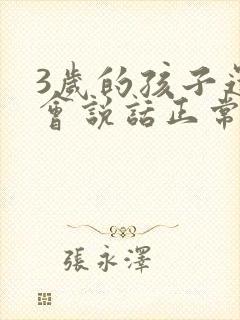 3歲的孩子
會說話正常
張永澤